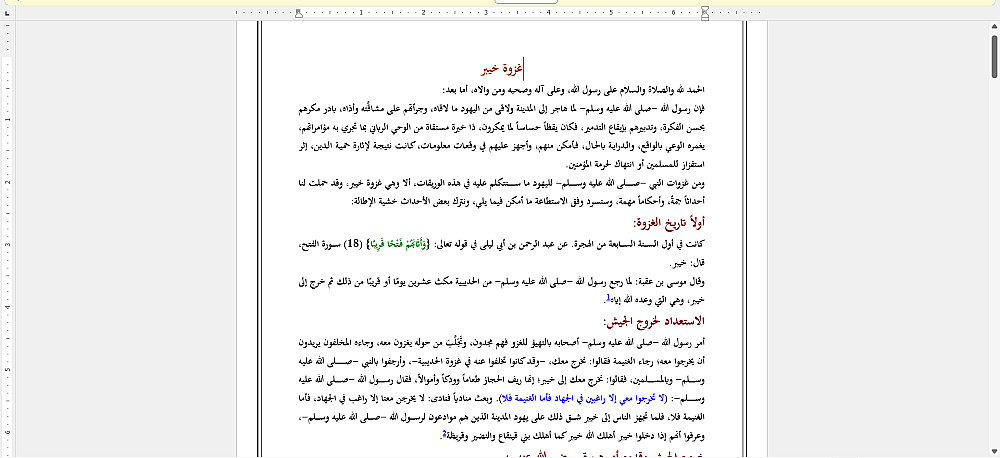 غزوة خيبر
الحمد لله والصلاة والسلام على رسول الله، وعلى آله وصحبه ومن والاه، أما بعد:
فإن رسول الله –صلى الله عليه وسلم– لما هاجر إلى المدينة ولاقى من اليهود ما لاقاه، وجرأتهم على مشاقَّته وأذاه، بادر مكرهم
بحسن الفكرة، وتدبيرهم بإيقاع التدمير، فكان يقظاً حساساً لما يمكرون، ذا خبرة مستقاة من الوحي الرباني بما تجري به مؤامراتهم،
يغمره الوعي بالواقع، والدراية بالحال، فأمكن منهم، وأجهز عليهم في وقعات معلومات، كانت نتيجة لإثارة حمية الدين، إثر
استفزاز للمسلمين أو انتهاك لحرمة المؤمنين.
ومن غزوات النبي –صلى الله عليه وسلم– لليهود ما سنتكلم عليه في هذه الوريقات، ألا وهي غزوة خيبر، وقد حملت لنا
أحداثاً جمةً، وأحكاماً مهمة، وسنسرد وفق الاستطاعة ما أمكن فيما يلي، ونترك بعض الأحداث خشية الإطالة:
أولاً تاريخ الغزوة:
كانت في أول السنة السابعة من الهجرة. عن عبد الرحمن بن أبي ليلى في قوله تعالى: {وَأَثَابَهُمْ فَتْحًا قَرِيبًا} (18) سورة الفتح،
قال: خيبر.
وقال موسى بن عقبة: لما رجع رسول الله –صلى الله عليه وسلم– من الحديبية مكث عشرين يومًا أو قريبًا من ذلك ثم خرج إلى
خيبر، وهي التي وعده الله إياه1.
الاستعداد لخروج الجيش:
أمر رسول الله –صلى الله عليه وسلم– أصحابه بالتهيؤ للغزو فهم مجدون، وتَجَلَّبَ من حوله يغزون معه، وجاءه المخلفون يريدون
أن يخرجوا معه؛ رجاء الغنيمة فقالوا: نخرج معك، –وقد كانوا تخلفوا عنه في غزوة الحديبية–، وأرجفوا بالنبي –صلى الله عليه
وسلم– وبالمسلمين، فقالوا: نخرج معك إلى خيبر؛ إنها ريف الحجاز طعاماً وودكاً وأموالاً، فقال رسول الله –صلى الله عليه
وسلم–: (لا تخرجوا معي إلا راغبين في الجهاد فأما الغنيمة فلا). وبعث منادياً فنادى: لا يخرجن معنا إلا راغب في الجهاد، فأما
الغنيمة فلا، فلما تجهز الناس إلى خيبر شق ذلك على يهود المدينة الذين هم موادعون لرسول الله –صلى الله عليه وسلم–،
وعرفوا أنهم إذا دخلوا خيبر أهلك الله خيبر كما أهلك بني قينقاع والنضير وقريظة2.